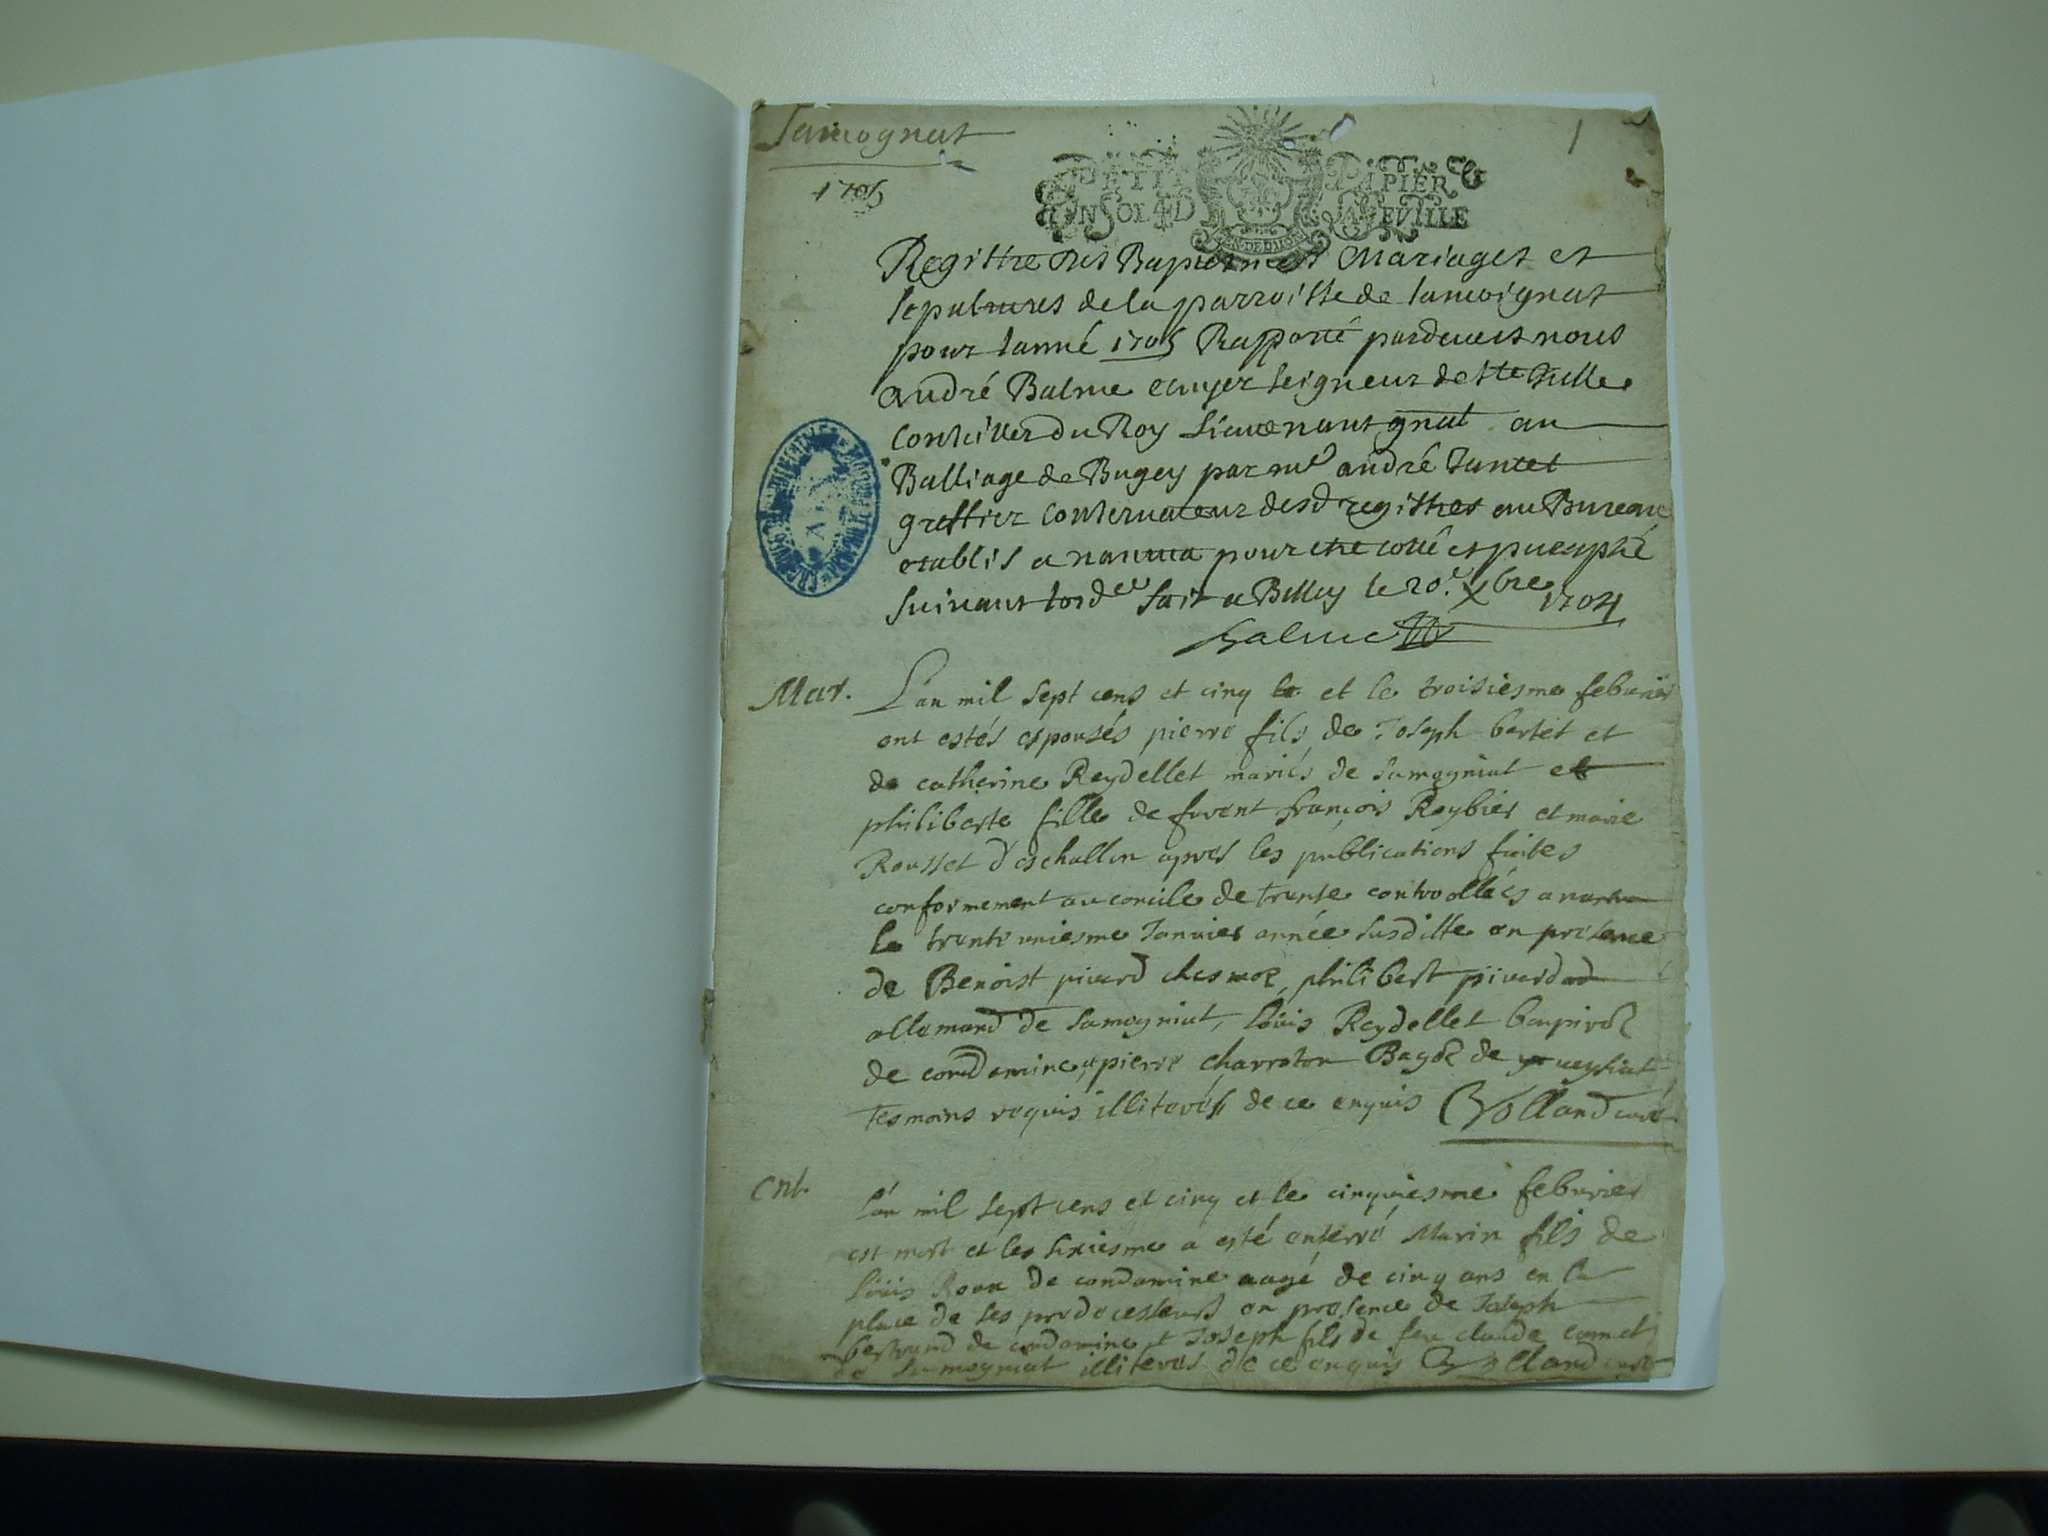 Samognat
1
1705
PETIT PAPIER
UN SOL 4 D LE FEVILLE
GEN. DE DIION
Registre des Baptesmes Mariages et
sepultures de la parroisse de Samoignat
pour lanné 1705 Rapporté pardevers nous
andré Balme ecuyer seigneur de Ste Julle
Conseiller du Roy Lieutenant gnal au
Balliage de Bugey par me andré Jantet
greffier conservateur desd registres au Bureau
etablis a nantua pour etre cotté et paraphé
suivant lord ce fait a Belley le 20e xbre 1704
Balme
Mar.
L'an mil sept cens et cinq et le troisiesme febvrier
ont estés espousés pierre fils de Joseph bertet et
de catherine Reydellet mariés de Samogniat et
philiberte fille de furent françois Reybier et marie
Rousset d'eschallon apres les publications faites
conformement au concile de trente controollées a nantua
le trente uniesme Janvier année susditte en presence
de Benoist pivard philibert pivard
allemand de Samogniat, Loüis Reydellet
de condamine, et pierre charreton de veysiat
Tesmoins requis illiterés de ce enquis Volland curé
Ent.
L'an mil sept cens et cinq et le cinquiesme febvrier
est mort et le sixiesme a esté enterré Marin fils de
Loüis Roux de condamine aagé de cinq ans en la
place de ses predecesseurs en presence de Joseph
bertrand de condamine et Joseph fils de feu claude
de Samogniat illiterés de ce enquis Volland curé